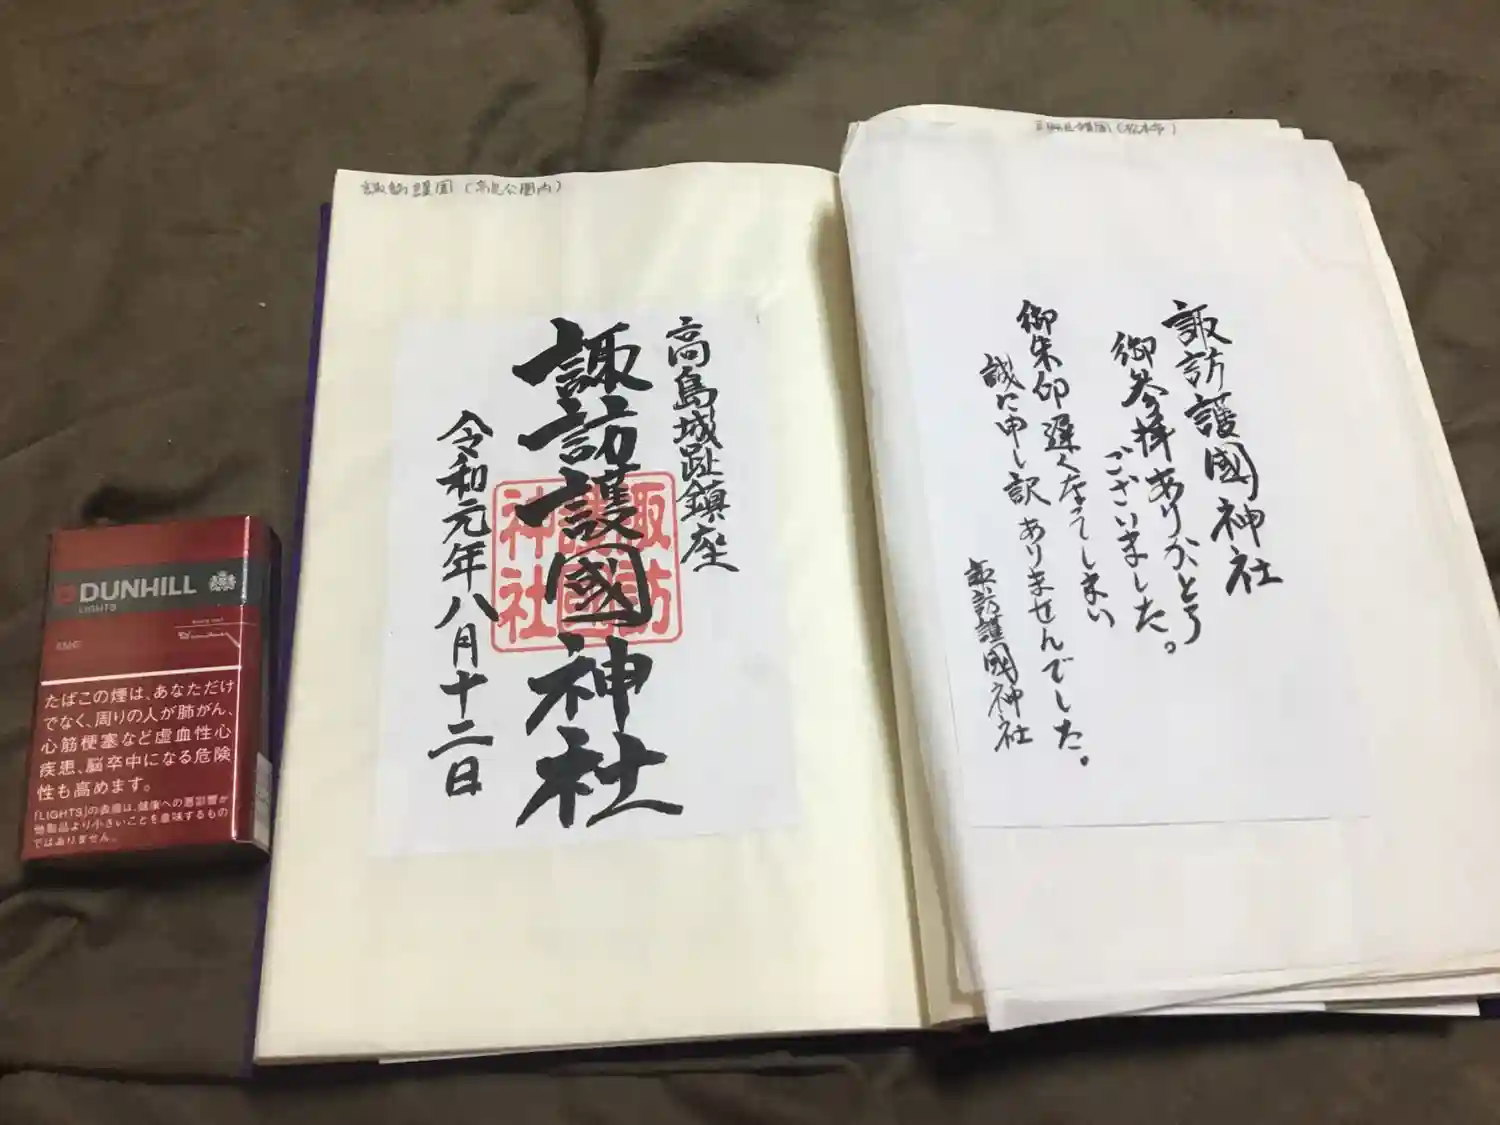 諏訪護国(高島公園内)
高島城趾鎮座
諏訪護國神社
令和元年八月十二日
諏訪
護國
神社
諏訪護國神社
御参拝ありがとう
ございました。
御朱印遅くなってしまい
誠に申し訳ありませんでした。
諏訪護國神社
DUNHILL
LIGHTS
たばこの煙は、あなただけ
でなく、周りの人が肺がん、
心筋梗塞など虚血性心
疾患、脳卒中になる危険
性も高めます。
「LIGHTS」の表現は、健康への悪影響が
他製品より小さいことを意味するもの
ではありません。